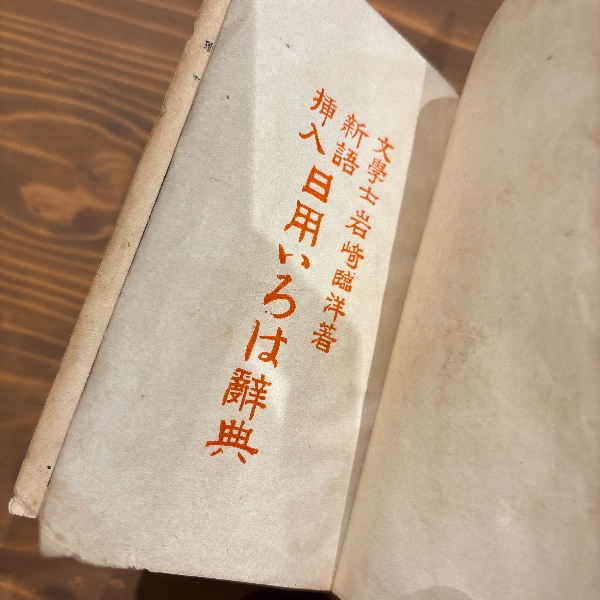 文學士岩﨑臨洋著
新語
挿入
日用いろは辭典